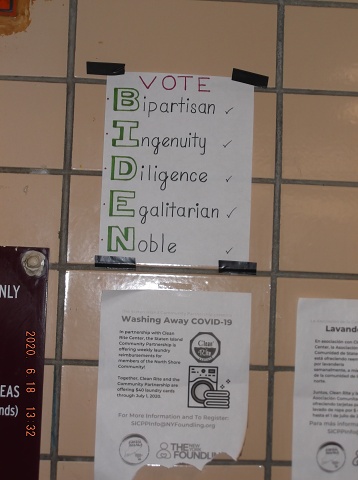 VOTE
Bipartisan ✓
Ingenuity ✓
Diligence ✓
Egalitarian ✓
Noble ✓
NLY
EAS
nds)
2020 6 18 13:32
Washing Away COVID-19
In partnership with Clean
Rite Center, the Staten Island
Community Partnership is
offering weekly laundry
reimbursements for
members of the North Shore
Community!
Together, Clean Rite and the
Community Partnership are
offering $40 laundry cards
through July 1, 2020.
Clean
Rite
For More Information and To Register:
SICPPInfo@NYFoundling.org
THE NEW YORK
FOUNDLING
Lavand
En asociación con C
Center, la Asociación
Comunidad de Staten
está ofreciendo
por lavandería
semanalmente, a
de la comunidad
norte.
Juntos, Clean Rite y la
Asociación Comunitaria
ofreciendo tarjetas de
lavado de ropa
1 de julio de
Para más información
SICPPInfo